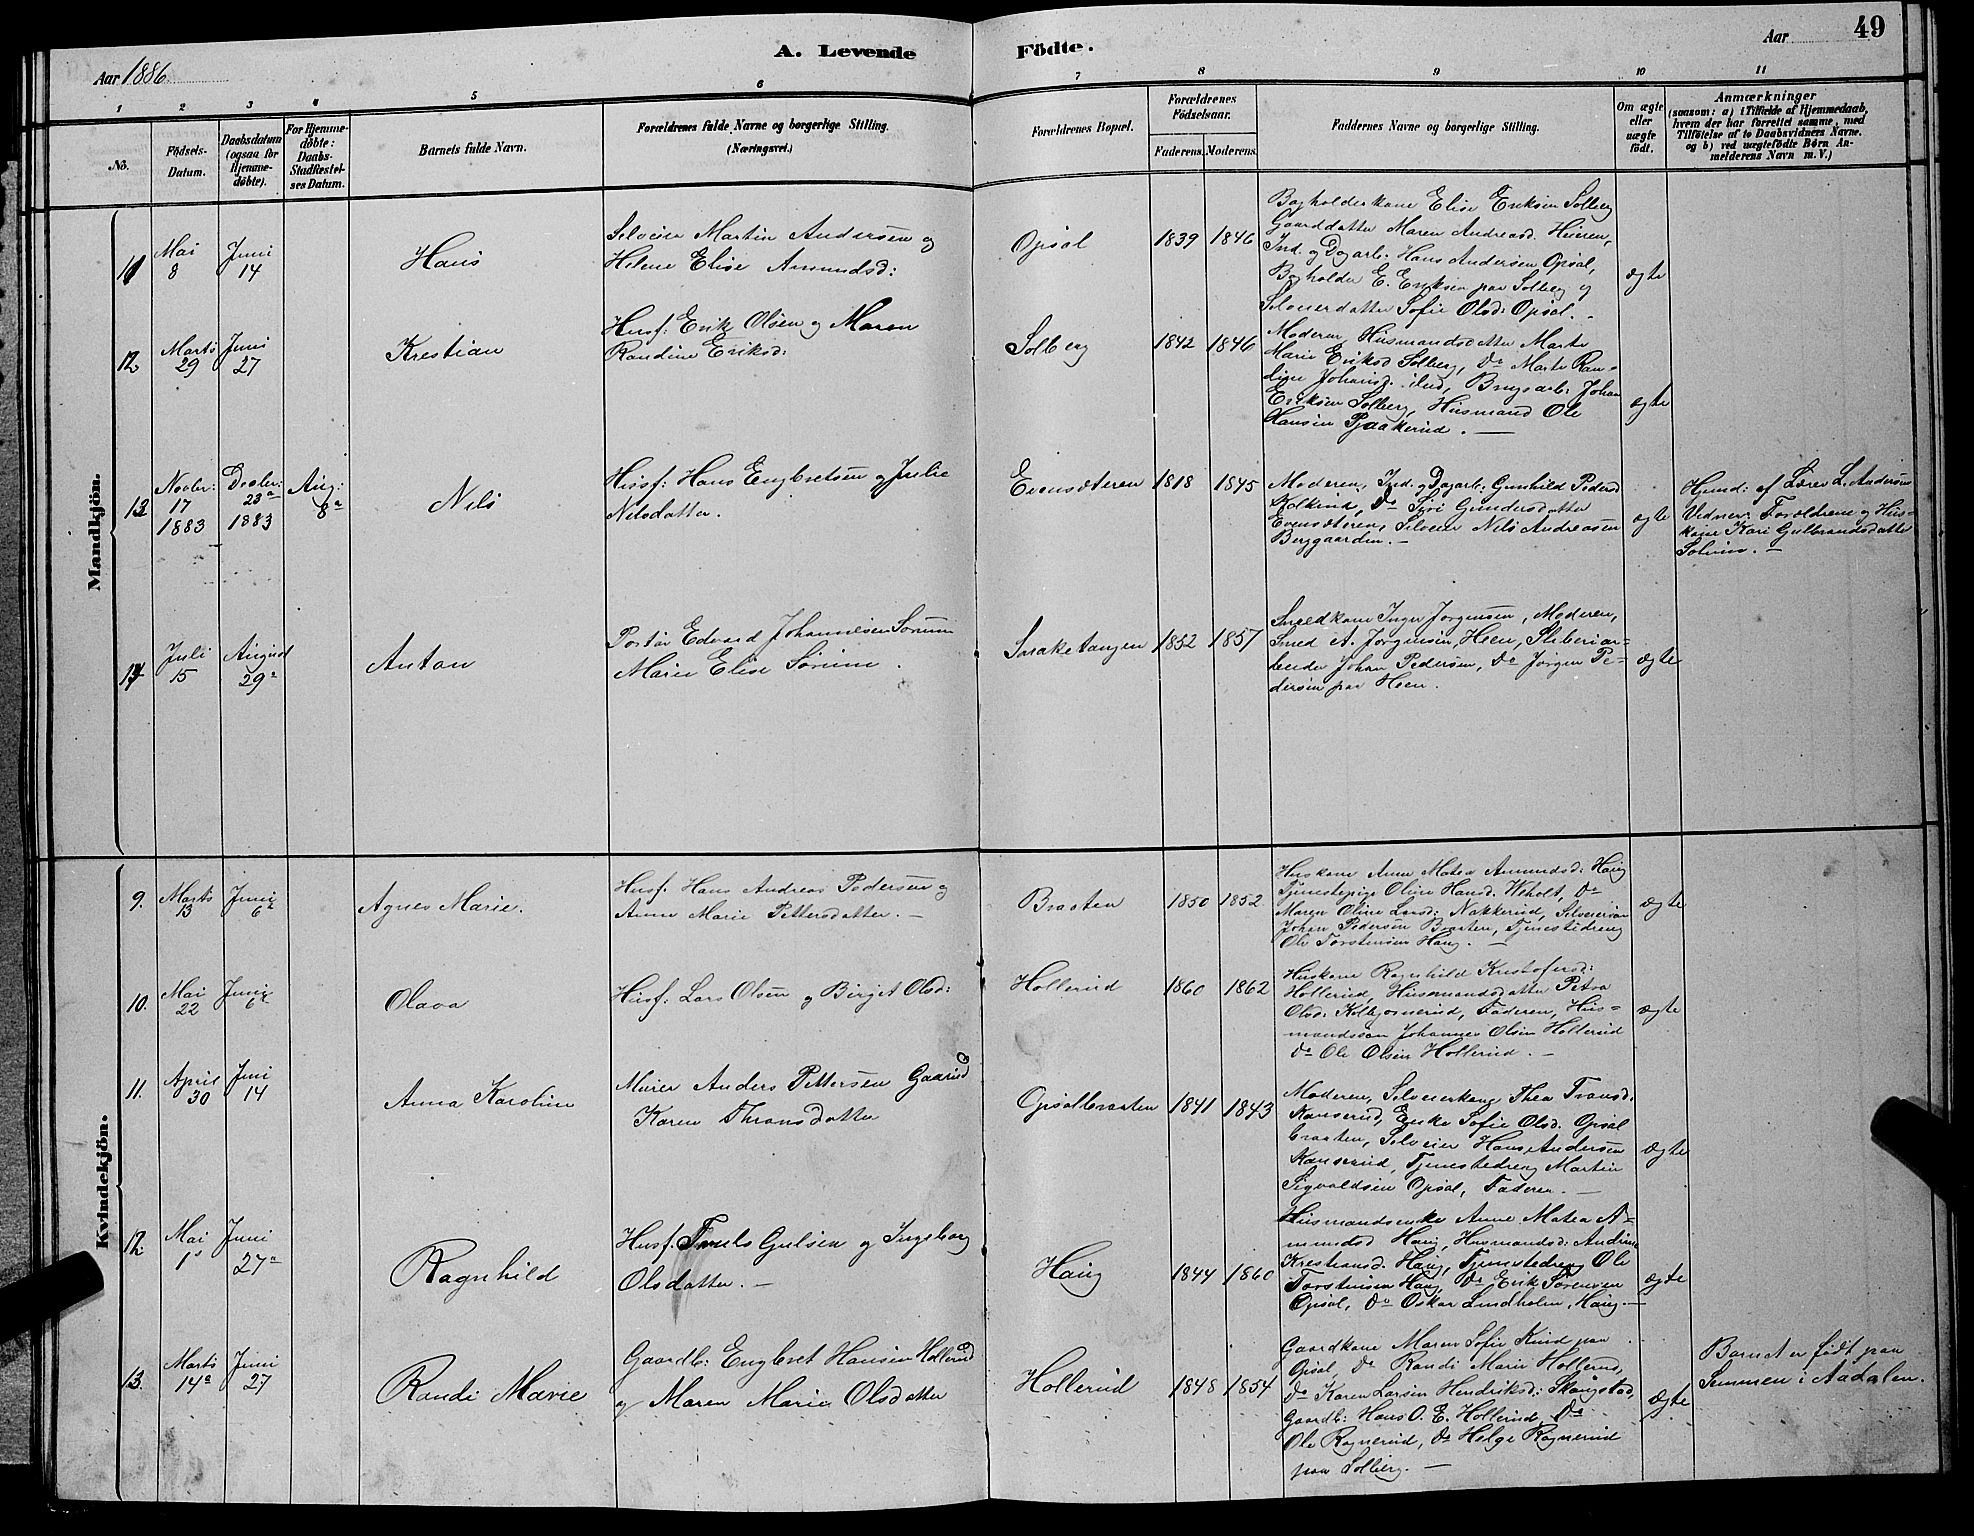 49
A. Levende Födte.
Aar 1886
Aar
1 2 3 4 5 6 7 8 9 10 11
No.
Födsels-
Datum.
Daabsdatum
(ogsaa for
Hjemme-
döbte).
For Hjemme-
döbte:
Daabs-
Stadfæstel-
ses Datum.
Barnets fulde Navn.
Forældrenes fulde Navne og borgerlige Stilling.
(Næringsvei.)
Forældrenes Bopæl.
Forældrenes
Födselsaar.
Faderens.
Moderens.
Faddernes Navne og borgerlige Stilling.
Om ægte
eller
uægte
födt.
Anmærkninger
(saasom: a) i Tilfælde af Hjemmedaab,
hvem der har forrettet samme, med
Tilföielse af to Daabsvidners Navne.
og b) ved uægtefödte Börn An-
melderens Navn m. V.)
Mandkjön.
11
Mai
8
Juni
14
Hans
Selveier Martin Andersen og
Helene Elise Amundsd:
Opsal
1839 1846
Bogholderkone Elise Eriksen Solberg
Gaarddatter Maren Andreasd. Heieren,
Ind. og Dagarb. Hans Andersen Opsal,
Bogholder E. Eriksen paa Solberg og
Selveierdatter Sofie Olsd: Opsal.
ægte
12
Marts
29
Juni
27
Krestian
Husf: Erik Olsen og Maren
Randine Eriksd:
Solberg
1842 1846
Moderen, Husmandsdatter Marte
Marie Eriksd Solberg, Do Marte Ran-
dine Johansd. ibid, Brugsarb. Johan
Eriksen Solberg, Husmand Ole
Hansen Pjaakerud.
ægte
13
Novbr:
17
1883
Decbr:
23a
1883
Aug:
8a
Nils
Husf: Hans Engbretsen og Julie
Nilsdatter.
Evensæteren
1818 1845
Moderen, Ind. og Dagarb. Gunhild Pedersd
Kolkind, Do Siri Gundersdatter
Evensæteren, Selveier Nils Andreasen
Berggaarden.
ægte
Hjmd: af Lærer L. Andersen
Vidner: Forældrene og Hus-
kone Kari Gulbrandsdatter
Solum.
14
Juli
15
August
29a
Anton
Portør Edvard Johannesen Sørum
Marie Elise Sørum.
Saraketangen
1852 1857
Smedkone Inger Jørgensen, Moderen,
Smed A. Jørgensen, Heen, Sliberiar-
beider Johan Pedersen, Do Jørgen Pe-
dersen paa Heen.
ægte
Kvindekjön.
9.
Marts
13
Juni
6
Agnes Marie.
Husf. Hans Andreas Pedersen og
Anne Marie Pettersdatter.
Braaten
1850 1852
Huskone Anne Matea Amundsd: Haug
Tjenestepige Oline Hansd. Viholt, Do
Maren Oline Larsd: Nakkerud, Selveiersøn
Johan Pedersen Braaten, Tjenestedreng
Ole Torstensen Haug.
ægte
10.
Mai
22
Juni
6
Olava
Husf: Lars Olsen og Birgit Olsd:
Hollerud
1860 1862
Huskone Ragnhild Kristofersd:
Hollerud, Husmandsdatter Petra
Olsd: Kolbjørnerud, Faderen, Hus-
mandssøn Johannes Olsen Hollerud
Do Ole Olsen Hollerud.
ægte
11.
April
30
Juni
14
Anna Karoline
Murer Anders Pettersen Gaarud
Karen Thronsdatter
Opsalbraaten
1841 1843
Moderen, Selveierkone Thea Transd.
Kanserud, Enke Sofie Olsd. Opsal
braaten, Selveier Hans Andersen
Kanserud, Tjenestedreng Martin
Sigvaldsen Opsal, Faderen.
ægte
12.
Mai
1
Juni
27a
Ragnhild
Husf. Truls Gulsen og Ingeborg
Olsdatter.
Haug
1844 1860
Husmandsenke Anne Matea A-
mundsd Haug, Husmandsd: Andrine
Krestiansd. Haug, Tjenestedreng Ole
Torstensen Haug, Do Erik Sørensen
Opsal, Do Oskar Lindholm, Haug.
ægte
13.
Marts
14a
Juni
27
Randi Marie
Gaardb: Engbret Hansen Hollerud
og Maren Marie Olsdatter
Hollerud
1848 1854
Gaardkone Maren Sofie Kind paa
Opsal, Do Randi Marie Hollerud,
Do Karen Larsine Hendriksd: Skaugstad,
Gaardb: Hans O. E. Hollerud, Do
Ole Ragnerud, Do Helge Ragnerud
paa Solberg.
ægte
Barnet er født paa
Semmen i Aadalen.